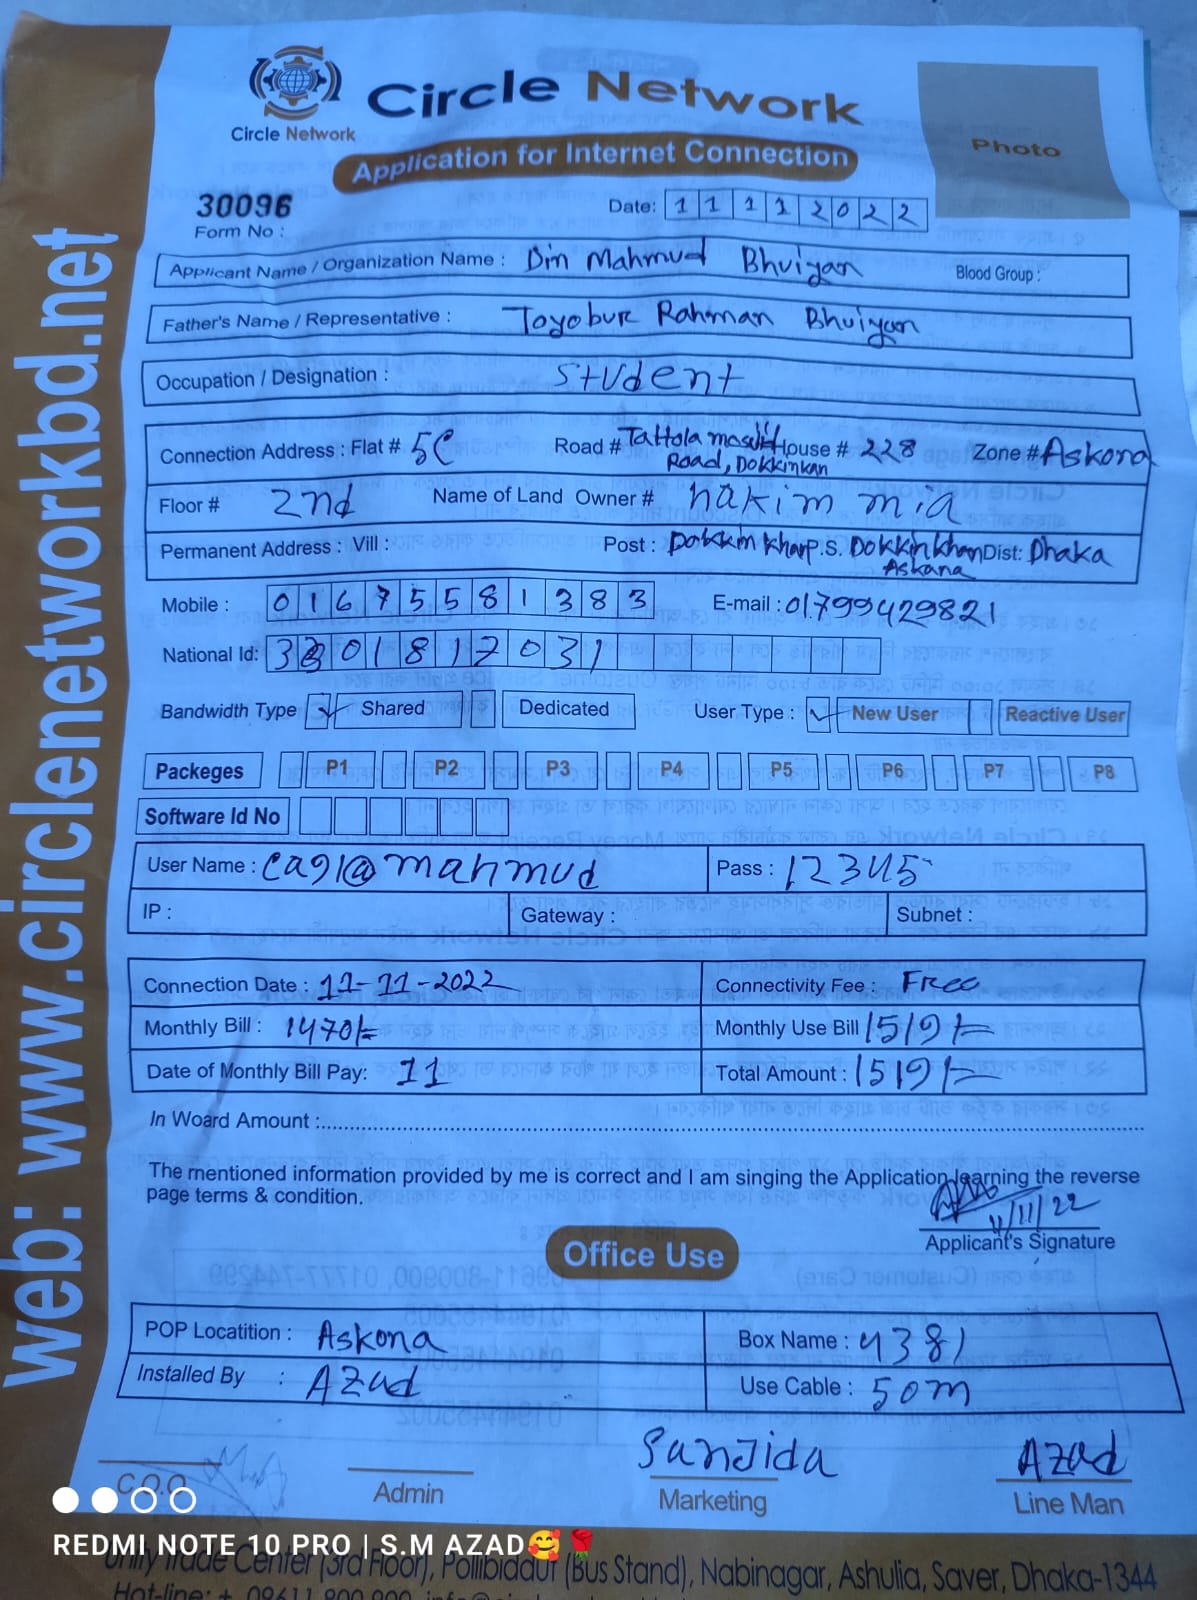 Circle Network
Circle Network
Application for Internet Connection
Photo
30096
Form No :
Date: 11112022
Applicant Name / Organization Name : Din Mahmud Bhuiyan Blood Group :
Father's Name / Representative : Toyobur Rahman Bhuiyan
Occupation / Designation : Student
Connection Address : Flat # 5C Road # Taltola masjid Road, Dokkinkan House # 228 Zone # Askona
Floor # 2nd Name of Land Owner # hakim mia
Permanent Address : Vill : Post : Dokkin khan P.S. Dokkinkhan Askana Dist: Dhaka
Mobile : 01675581383 E-mail : 01799429821
National Id: 01817031
Bandwidth Type ✓ Shared Dedicated User Type : ✓ New User Reactive User
Packeges P1 P2 P3 P4 P5 P6 P7 P8
Software Id No
User Name : mahmud Pass : 12345
IP : Gateway : Subnet :
Connection Date : 11-11-2022 Connectivity Fee : Free
Monthly Bill : 1470/= Monthly Use Bill 1519/=
Date of Monthly Bill Pay: 11 Total Amount : 1519/=
In Woard Amount :
The mentioned information provided by me is correct and I am singing the Application learning the reverse
page terms & condition.
11/11/22
Applicant's Signature
Office Use
POP Locatition : Askona Box Name : 4381
Installed By : AZad Use Cable : 50m
Sanjida AZad
C.O.O Admin Marketing Line Man
REDMI NOTE 10 PRO | S.M AZAD🥰🌹
Unity Trade Center (3rd Floor), Pollibiddut (Bus Stand), Nabinagar, Ashulia, Saver, Dhaka-1344
web: www.circlenetworkbd.net